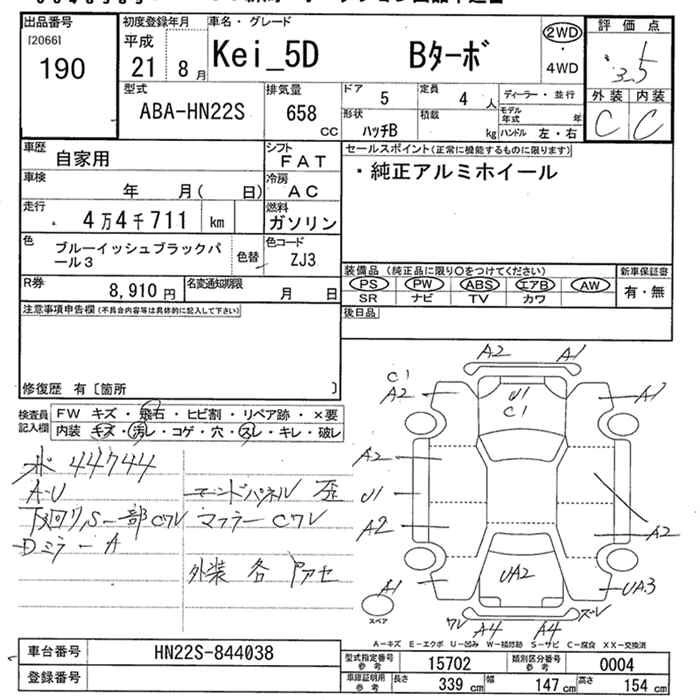 出品番号 初度登録年月 車名・グレード 評価点
[2066]
190
平成
21 8月
Kei_5D Bターボ
2WD
・
4WD
3.5
型式
ABA-HN22S
排気量
658 cc
ドア 5 定員 4人 ディーラー・並行
形状 ハッチB 積載 kg モデル年式 年
ハンドル 左・右
外装 内装
C C
車歴 自家用
シフト FAT
車検 年 月( 日)
冷房 AC
走行 4万4千711 km
燃料 ガソリン
色 ブルーイッシュブラックパール3
色替
色コード ZJ3
R券 8,910円
名変通知期限 月 日
セールスポイント(正常に機能するものに限ります)
・純正アルミホイール
装備品(純正品に限り○をつけてください) 新車保証書
PS PW ABS エアB AW 有・無
SR ナビ TV カワ
後日品
注意事項申告欄(不具合内容等は具体的に記入して下さい)
修復歴 有〔箇所 〕
検査員記入欄
FW キズ・飛石・ヒビ割・リペア跡・×要
内装 キズ・汚レ・コゲ・穴・スレ・キレ・破レ
44744
A-U エンドパネル 歪
下回りS 一部Cワレ マフラーCワレ
Dミラー A
外装 各
A2 A1
C1
A2 U1 C1 A1
A2
U1
A2 A2
A1 UA2 UA3
ワレ A4 A4 ズレ
スペア
A-キズ E-エクボ U-凹み W-補修跡 S-サビ C-腐食 XX-交換済
車台番号 HN22S-844038
登録番号
型式指定番号 参考 15702 類別区分番号 参考 0004
車庫証明用 参考 長さ 339cm 幅 147cm 高さ 154cm